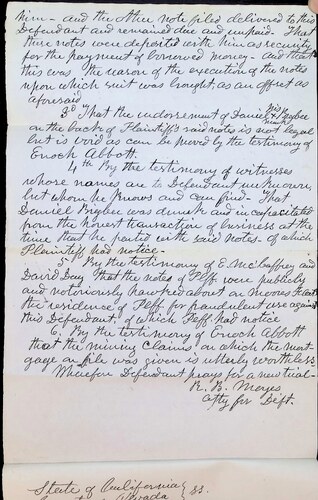 him - and the other note filed delivered to this
Defendant and remained due and unpaid - That
these notes were deposited with him as security
for the payment of borrowed money - and that
this was the reason of the execution of the notes
upon which suit was brought as an offset as
aforesaid
3d That the endorsement of Daniel his X mark Bigbee
on the back of Plaintiffs said notes is not legal
but is void as can be proved by the testimony of
Enoch Abbott.
4th By the testimony of witnesses
whose names are to Defendant unknown
but whom he knows and can find - That
Daniel Bigbee was drunk and incapacitated
from the honest transaction of business at the
time that he parted with said notes - of which
Plaintiff had notice -
5th By the testimony of E. McGaffey and
David Day that the notes of Peff. were publicly
and notoriously hawked about on Moores
the residence of Peff for fraudulent use against
this Defendant, of which Peff. had notice
6. By the testimony of Enoch Abbott
that the mining claims on which the mort-
gage on file was given is utterly worthless
Wherefore Defendant prays for a new trial -
R. B. Moyes
Atty for Deft.
State of California } ss.
Nevada